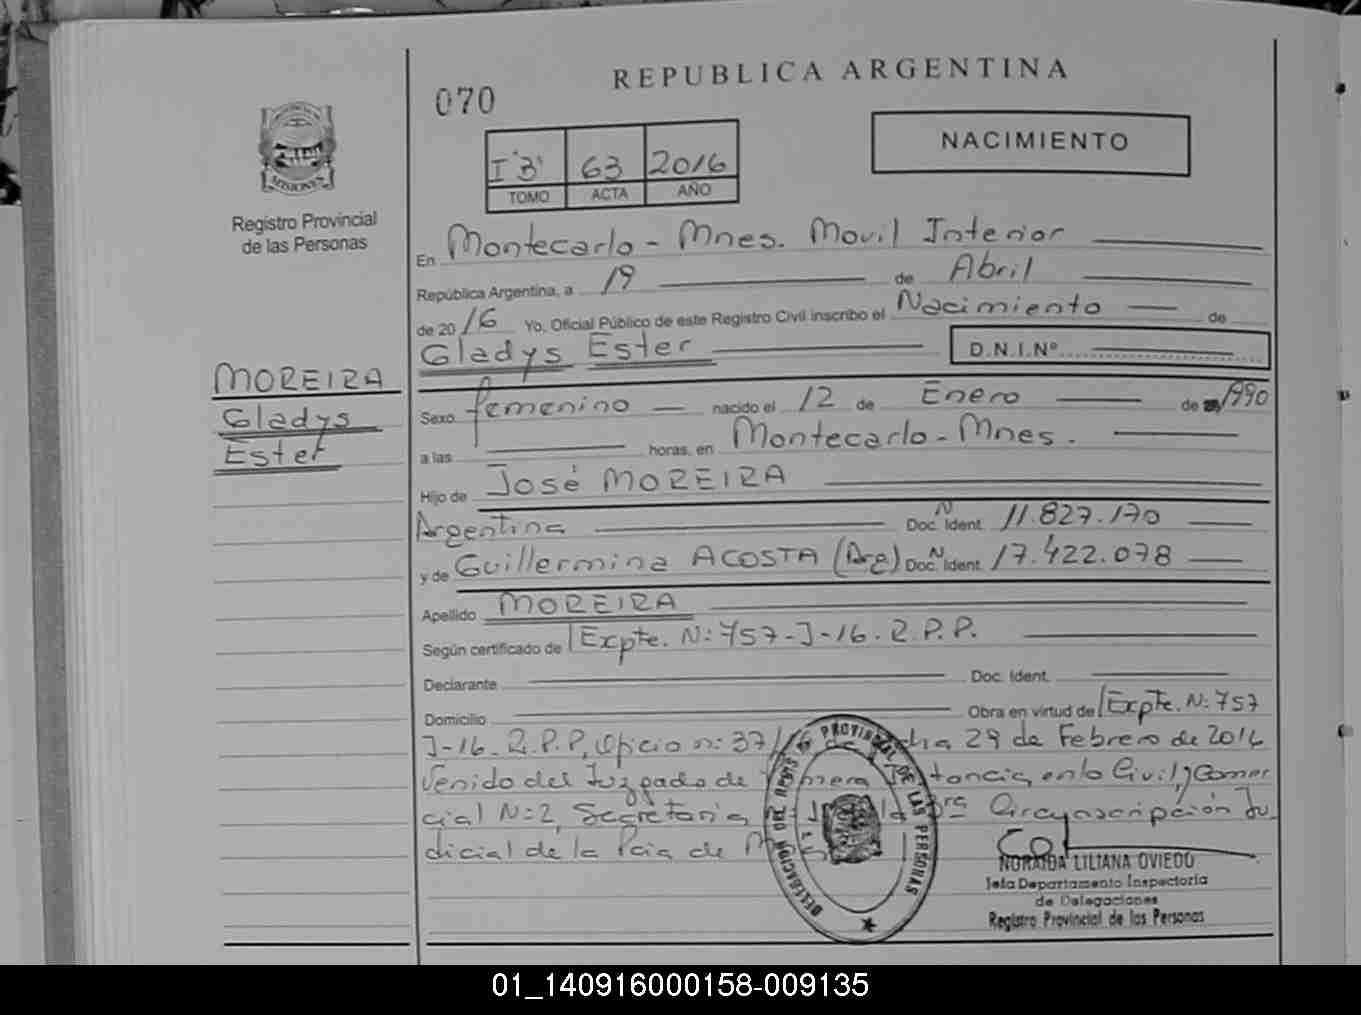 REPUBLICA ARGENTINA
070
NACIMIENTO
I "B" 63 2016
TOMO ACTA AÑO
MISIONES
Registro Provincial
de las Personas
En Montecarlo - Mnes. Movil Interior
República Argentina, a 19 de Abril
de 2016 Yo, Oficial Público de este Registro Civil inscribo el Nacimiento de
Gladys Ester D.N.I.Nº
MOREIRA
Gladys
Ester
Sexo femenino nacido el 12 de Enero de 1990
a las horas, en Montecarlo - Mnes.
Hijo de José MOREIRA
Argentina Doc. Ident. N 11.827.170
y de Guillermina ACOSTA (Arg) Doc. Ident. N 17.422.078
Apellido MOREIRA
Según certificado de Expte. N: 757-J-16. R.P.P.
Declarante Doc. Ident.
Domicilio Obra en virtud de Expte. N: 757
J-16. R.P.P, Oficio n: 37/ de dia 29 de Febrero de 2016
Venido del Juzgado de en lo Civil, y Comer
cial N:2, Secretaria Circunscripción Ju
dicial de la Pcia de
DELEGACION DEL REGISTRO PROVINCIAL DE LAS PERSONAS
NORAIDA LILIANA OVIEDO
Jefa Departamento Inspectoria
de Delegaciones
Registro Provincial de las Personas
01_140916000158-009135